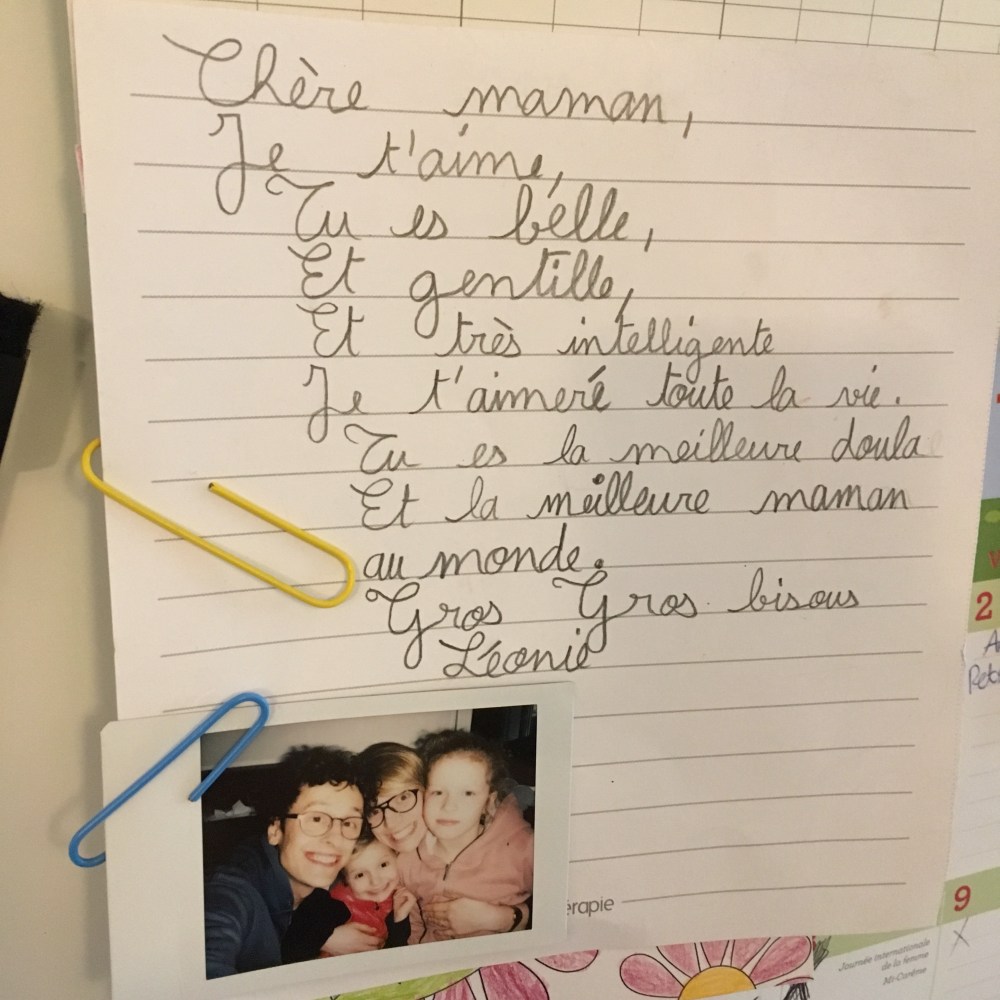 Chère maman,
Je t'aime,
Tu es belle,
Et gentille,
Et très intelligente
Je t'aimeré toute la vie.
Tu es la meilleure doula
Et la meilleure maman
au monde.
Gros Gros bisous
Léonie
érapie
2
9
X
Journée internationale
de la femme
Mi-Carême